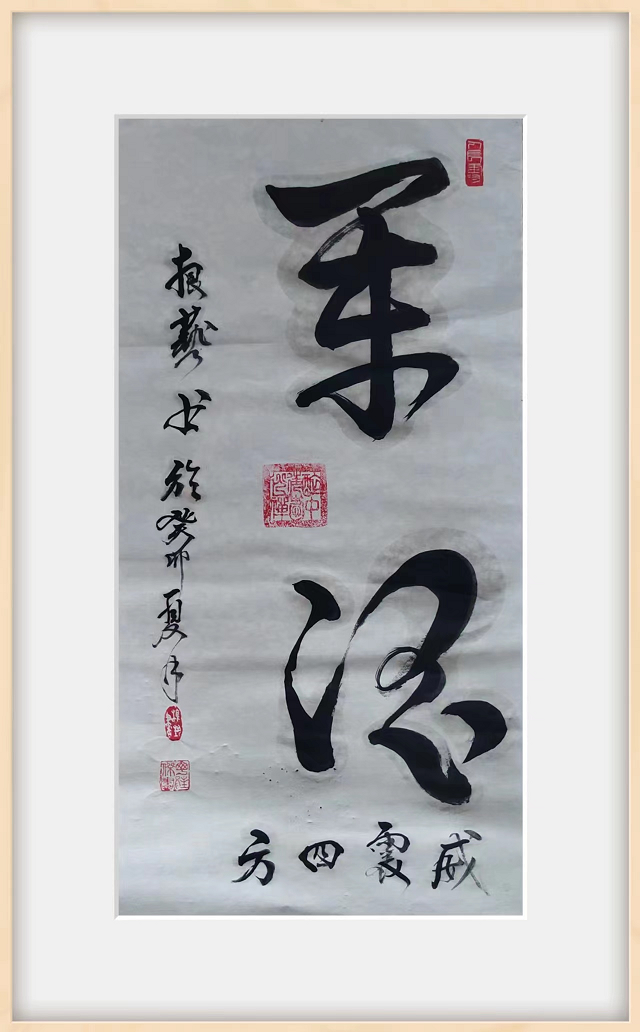 军魂
威震四方
根藝书於癸卯夏月